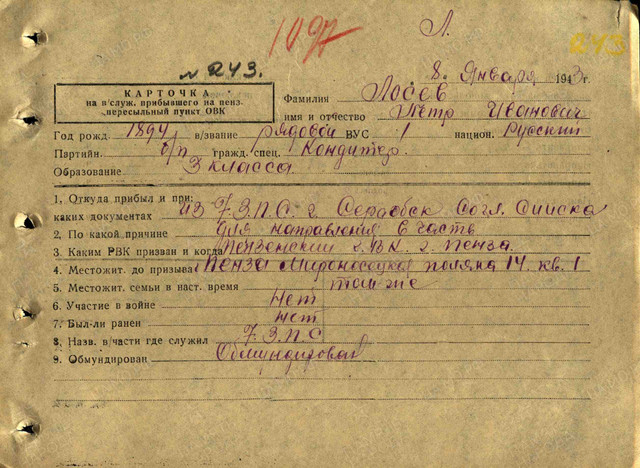 Л.
1097
№ 243.
243
8. Января 1943 г.
КАРТОЧКА
на в/служ. прибывшего на пенз.
пересыльный пункт ОВК
Фамилия Лосев
имя и отчество Петр Иванович
Год рожд. 1894 в/звание рядовой ВУС 1 национ. Русский
Партийн. б/п гражд. спец. Кондитер
Образование 3 класса
1. Откуда прибыл и при из 7 З.П.С. г. Сердобск Согл. Списка
каких документах
2. По какой причине для направления в часть
3. Каким РВК призван и когда Пензенский г.в.к. г. Пенза
4. Местожит. до призыва Пенза Мироносецкая поляна 14. кв. 1
5. Местожит. семьи в наст. время там же
6. Участие в войне нет
7. Был-ли ранен нет
8. Назв. в/части где служил 7. З.П.С
9. Обмундирован Обмундирован